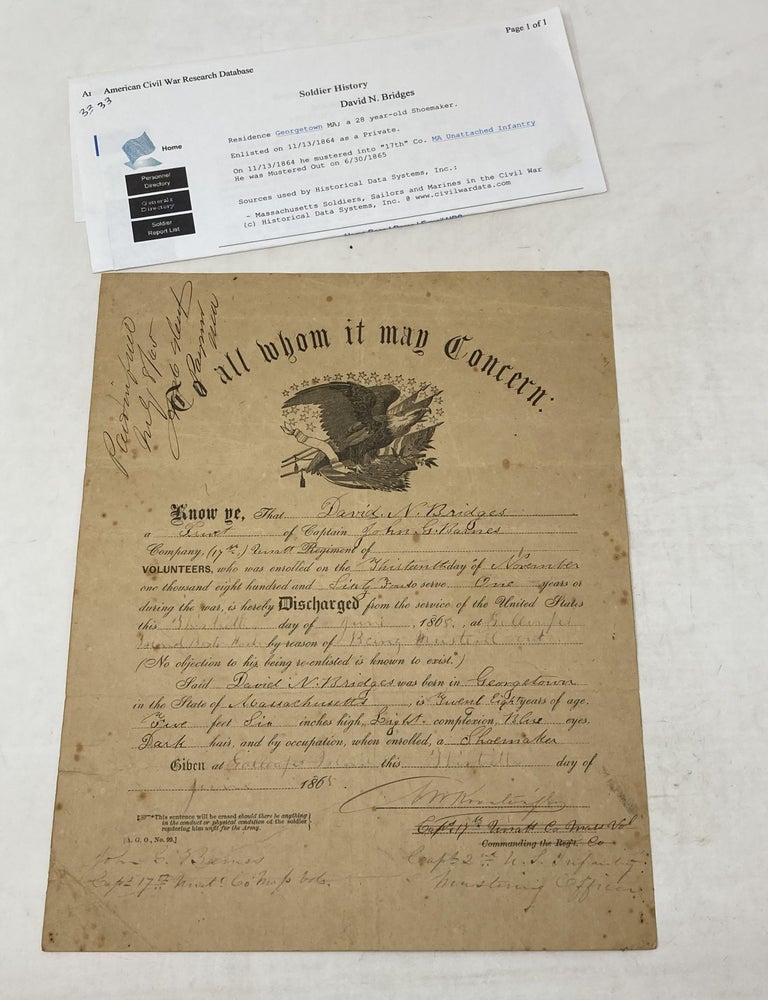 Page 1 of 1
American Civil War Research Database
33 33
Soldier History
David N. Bridges
Home
Personnel
Directory
Generals
Directory
Soldier
Report List
Residence Georgetown MA; a 28 year-old Shoemaker.
Enlisted on 11/13/1864 as a Private.
On 11/13/1864 he mustered into "17th" Co. MA Unattached Infantry
He was Mustered Out on 6/30/1865
Sources used by Historical Data Systems, Inc.:
- Massachusetts Soldiers, Sailors and Marines in the Civil War
(c) Historical Data Systems, Inc. @ www.civilwardata.com
Paid in full
July 8/65
To all whom it may Concern:
Know ye, That David. N. Bridges
a of Captain John. G. Barnes
Company, (17th.) Unatt Regiment of
VOLUNTEERS, who was enrolled on the Thirteenth day of November
one thousand eight hundred and Sixty Four to serve One years or
during the war, is hereby Discharged from the service of the United States
this day of June, 1865, at
by reason of Being Mustered out
(No objection to his being re-enlisted is known to exist.*)
Said David N. Bridges was born in Georgetown
in the State of Massachusetts, is Twenty Eight years of age,
Five feet Six inches high, Light complexion, Blue eyes,
Dark hair, and by occupation, when enrolled, a Shoemaker
Given at this day of
June 1865.
*This sentence will be erased should there be anything
in the conduct or physical condition of the soldier
rendering him unfit for the Army.
[A. G. O., No. 99.]
Capt. 17th Unatt Co Mass Vol
Commanding the Reg't. Co
John G. Barnes
Capt 17th Unatt. Co Mass Vols.
Capt 2nd U. S. Infantry
Mustering Officer